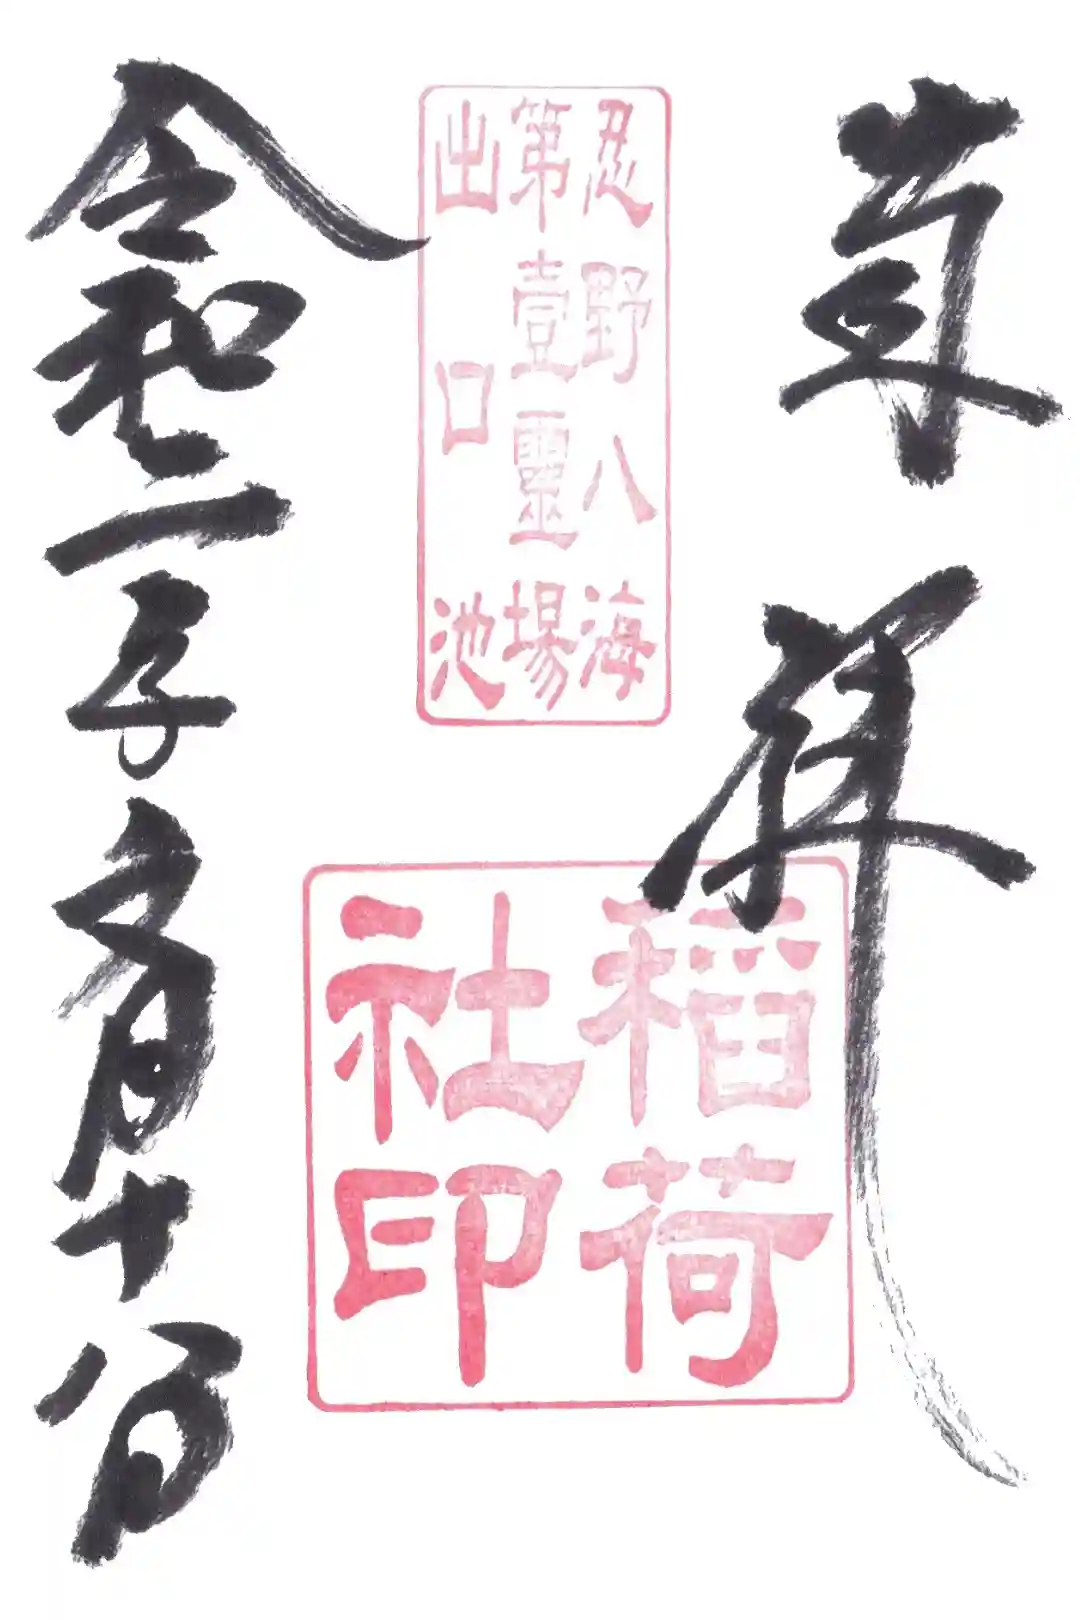 奉拝
忍野八海
第壹靈場
出口池
稲荷
社印
令和二子月十八日